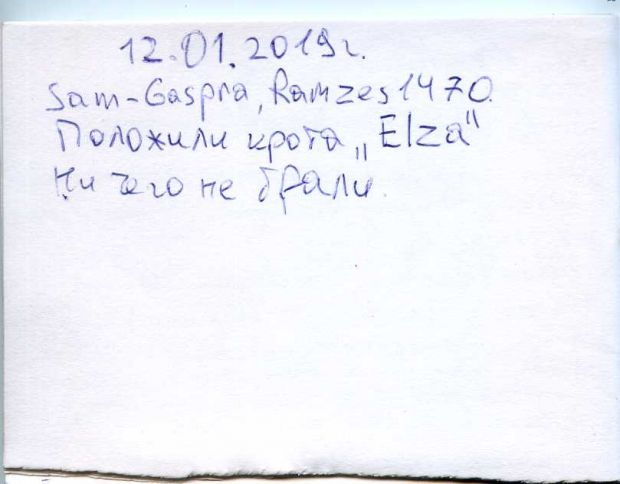 12.01.2019г.
Sam-Gaspra, Ramzes1470.
Положили крота „Elza"
Ни чего не брали.